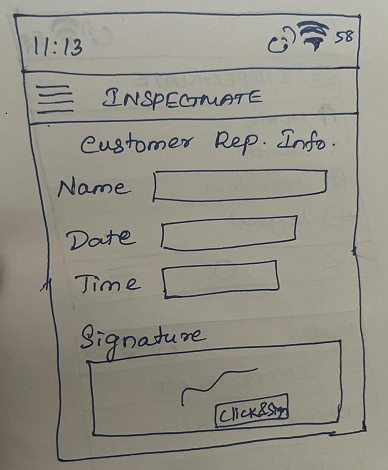 11:13 58
INSPECTMATE
Customer Rep. Info.
Name
Date
Time
Signature
Click&Sign